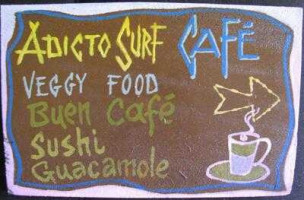 ADICTO SURF CAFÉ
VEGGY FOOD
Buen Café
Sushi
Guacamole